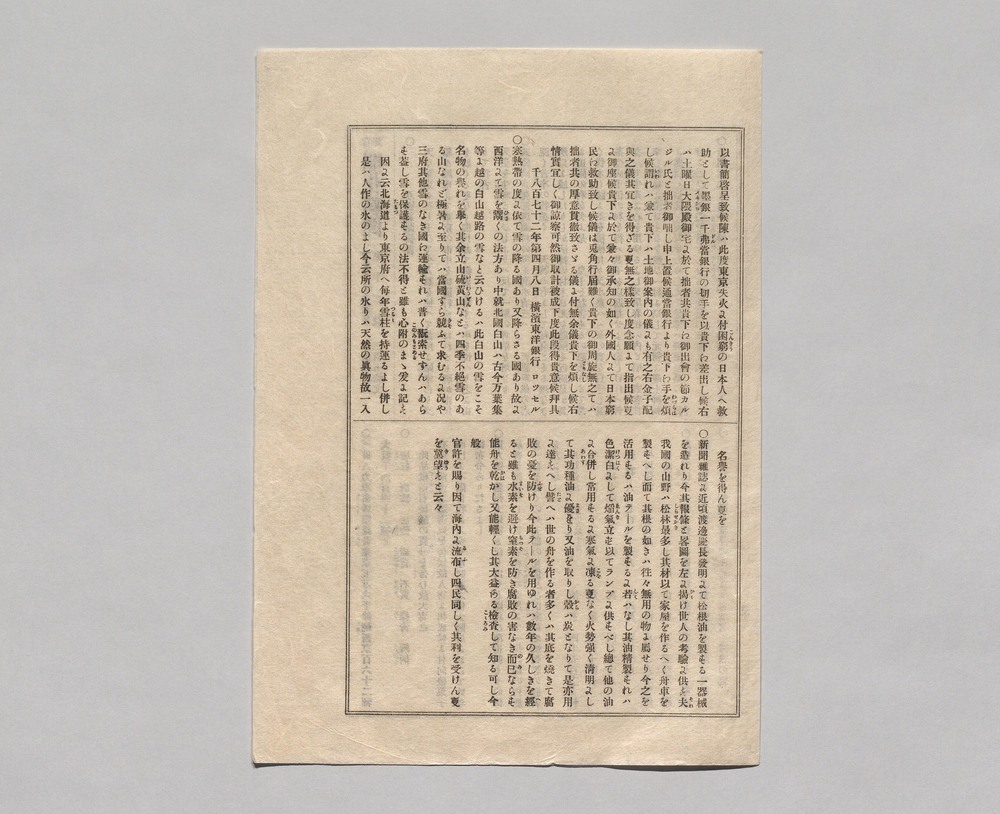 以書簡啓呈致候陳ハ此度東京失火ニ付困窮の日本人へ救
助として墨銀一千弗當銀行の切手を以貴下ゟ差出し候右
ハ土曜日大隈殿御宅ニ於て拙者共貴下ゟ御出會の節カル
ジル氏と拙者御咄し申上置候通當銀行より貴下ゟ手を煩
し候謂れハ兼て貴下ハ土地御案内の儀ニも有之右金子配
與之儀其宜きを得ざる㕝無之樣致し度念願ニて指出候㕝
ニ御座候貴下ニ於て兼々御承知の如く外國人ニて日本窮
民ゟ救助致し候儀は兎角行届難く貴下の御周旋無之てハ
拙者共の厚意貫徹致さゞる儀ニ付無余儀貴下を煩し候右
情實宜しく御諒察可然御取計被成下度此段得貴意候拜具
千八百七十二年第四月八日 橫濱東洋銀行 ロツセル
〇寒熱帶の度ニ依て雪の降る國あり又降らさる國あり故ニ
西洋ニて雪を鬻くの法方あり中就北國白山ハ古今万葉集
等ニ越の白山越路の雪など云ひけるハ此白山の雪をこそ
名物の譽れを擧く其余立山硫黃山なとハ四季不絕雪のあ
る山なれど極暑ニ至りてハ當國すら競ふて求むるニ況や
三府其他雪のなき國ゟ運輸それハ普く翫索せずんハあら
そ葢し雪を保護そるの法不得と雖も心附のまゝ爰ニ記そ
因ニ云北海道より東京府へ每年雪柱を持運るよし併し
是ハ人作の氷のよし今云所の氷りハ天然の眞物故一入
名譽を得ん㕝を
〇新聞雜誌ニ近頃渡邊慶長發明ニて松根油を製そる一器械
を造れり今其報條と畧圖を左ニ揭け世人の考驗ニ供そ夫
我國の山野ハ松林最多し其材以て家屋を作るへく舟車を
製そへし而て其根の如きハ往々無用の物ニ屬せり今之を
活用そるハ油テールを製そるニ若ハなし其油精製それハ
色潔白ニして烟氣立を以てランプニ供そべし總て他の油
ニ合併し常用そるニ寒氣ニ凍る㕝なく火勢强く淸明ニし
て其功種油ニ優をり又油を取りし殼ハ炭となりて是亦用
ニ達そへし譬ヘハ世の舟を作る者多くハ其底を燒きて腐
敗の憂を防けり今此テールを用ゆれハ數年の久しきを經
ると雖も水素を避け窒素を防き腐敗の害なき而已ならそ
能舟を乾かし又能輕くし其大益ある檢查して知る可し今
般
官許を賜り因て海內ニ流布し四民同しく其利を受けん㕝
を冀望そと云々